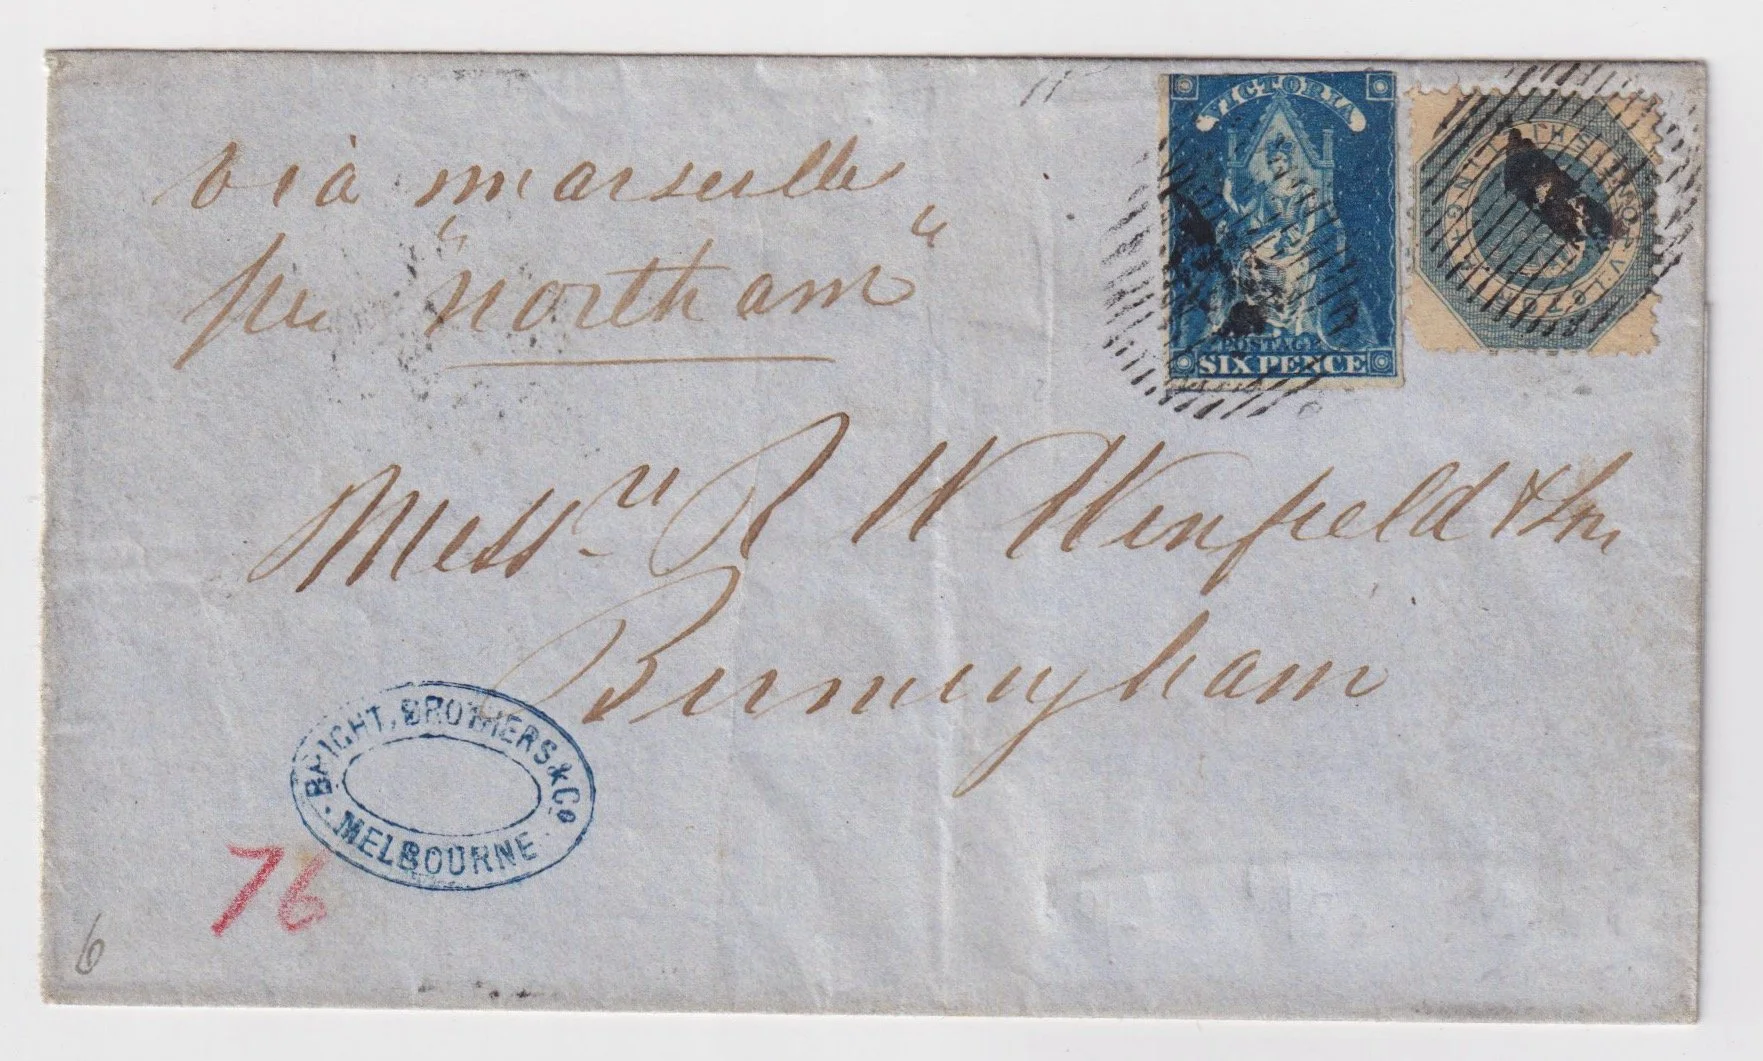 viâ marseille
per "Northam"
VICTORIA
POSTAGE
SIX PENCE
VICTORIA
Mess.rs R W Winfield & Son
Birmingham
BRIGHT, BROTHERS & Co
MELBOURNE
76
6